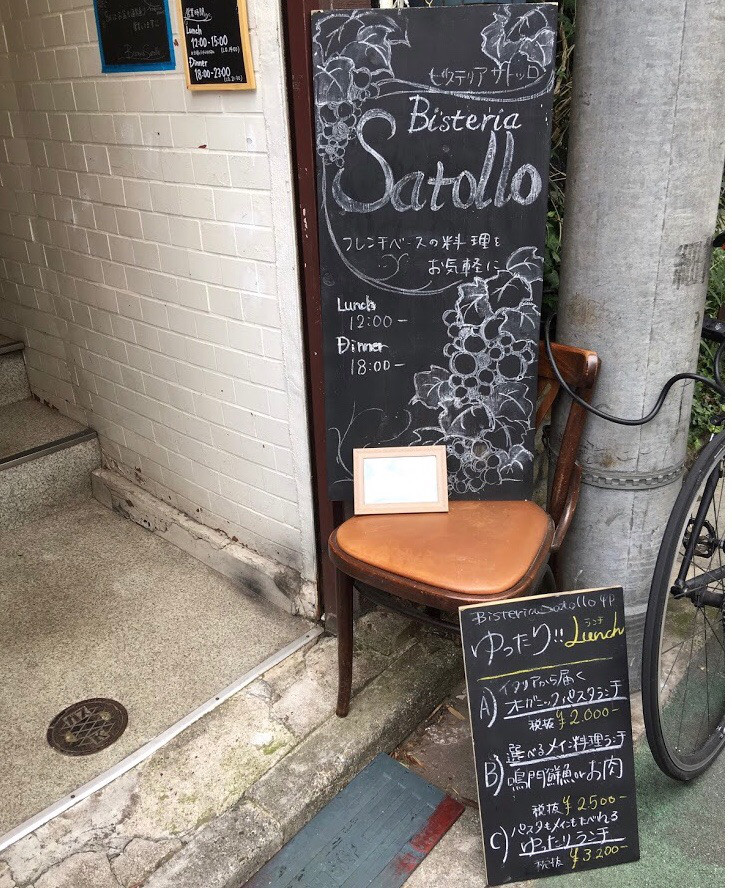 営業時間
Lunch
12:00-15:00
Dinner
18:00-23:00
ビステリア サトッロ
Bisteria
Satollo
フレンチベースの料理を
お気軽に
Lunch
12:00-
Dinner
18:00-
Bisteria Satollo 4F
ゆったり!! Lunch
ランチ
A) イタリアから届く
オーガニックパスタランチ
税抜 ¥2,000-
B) 選べるメイン料理ランチ
鳴門鮮魚orお肉
税抜 ¥2500-
C) パスタもメインもたべれる
ゆったりランチ
税抜 ¥3,200-